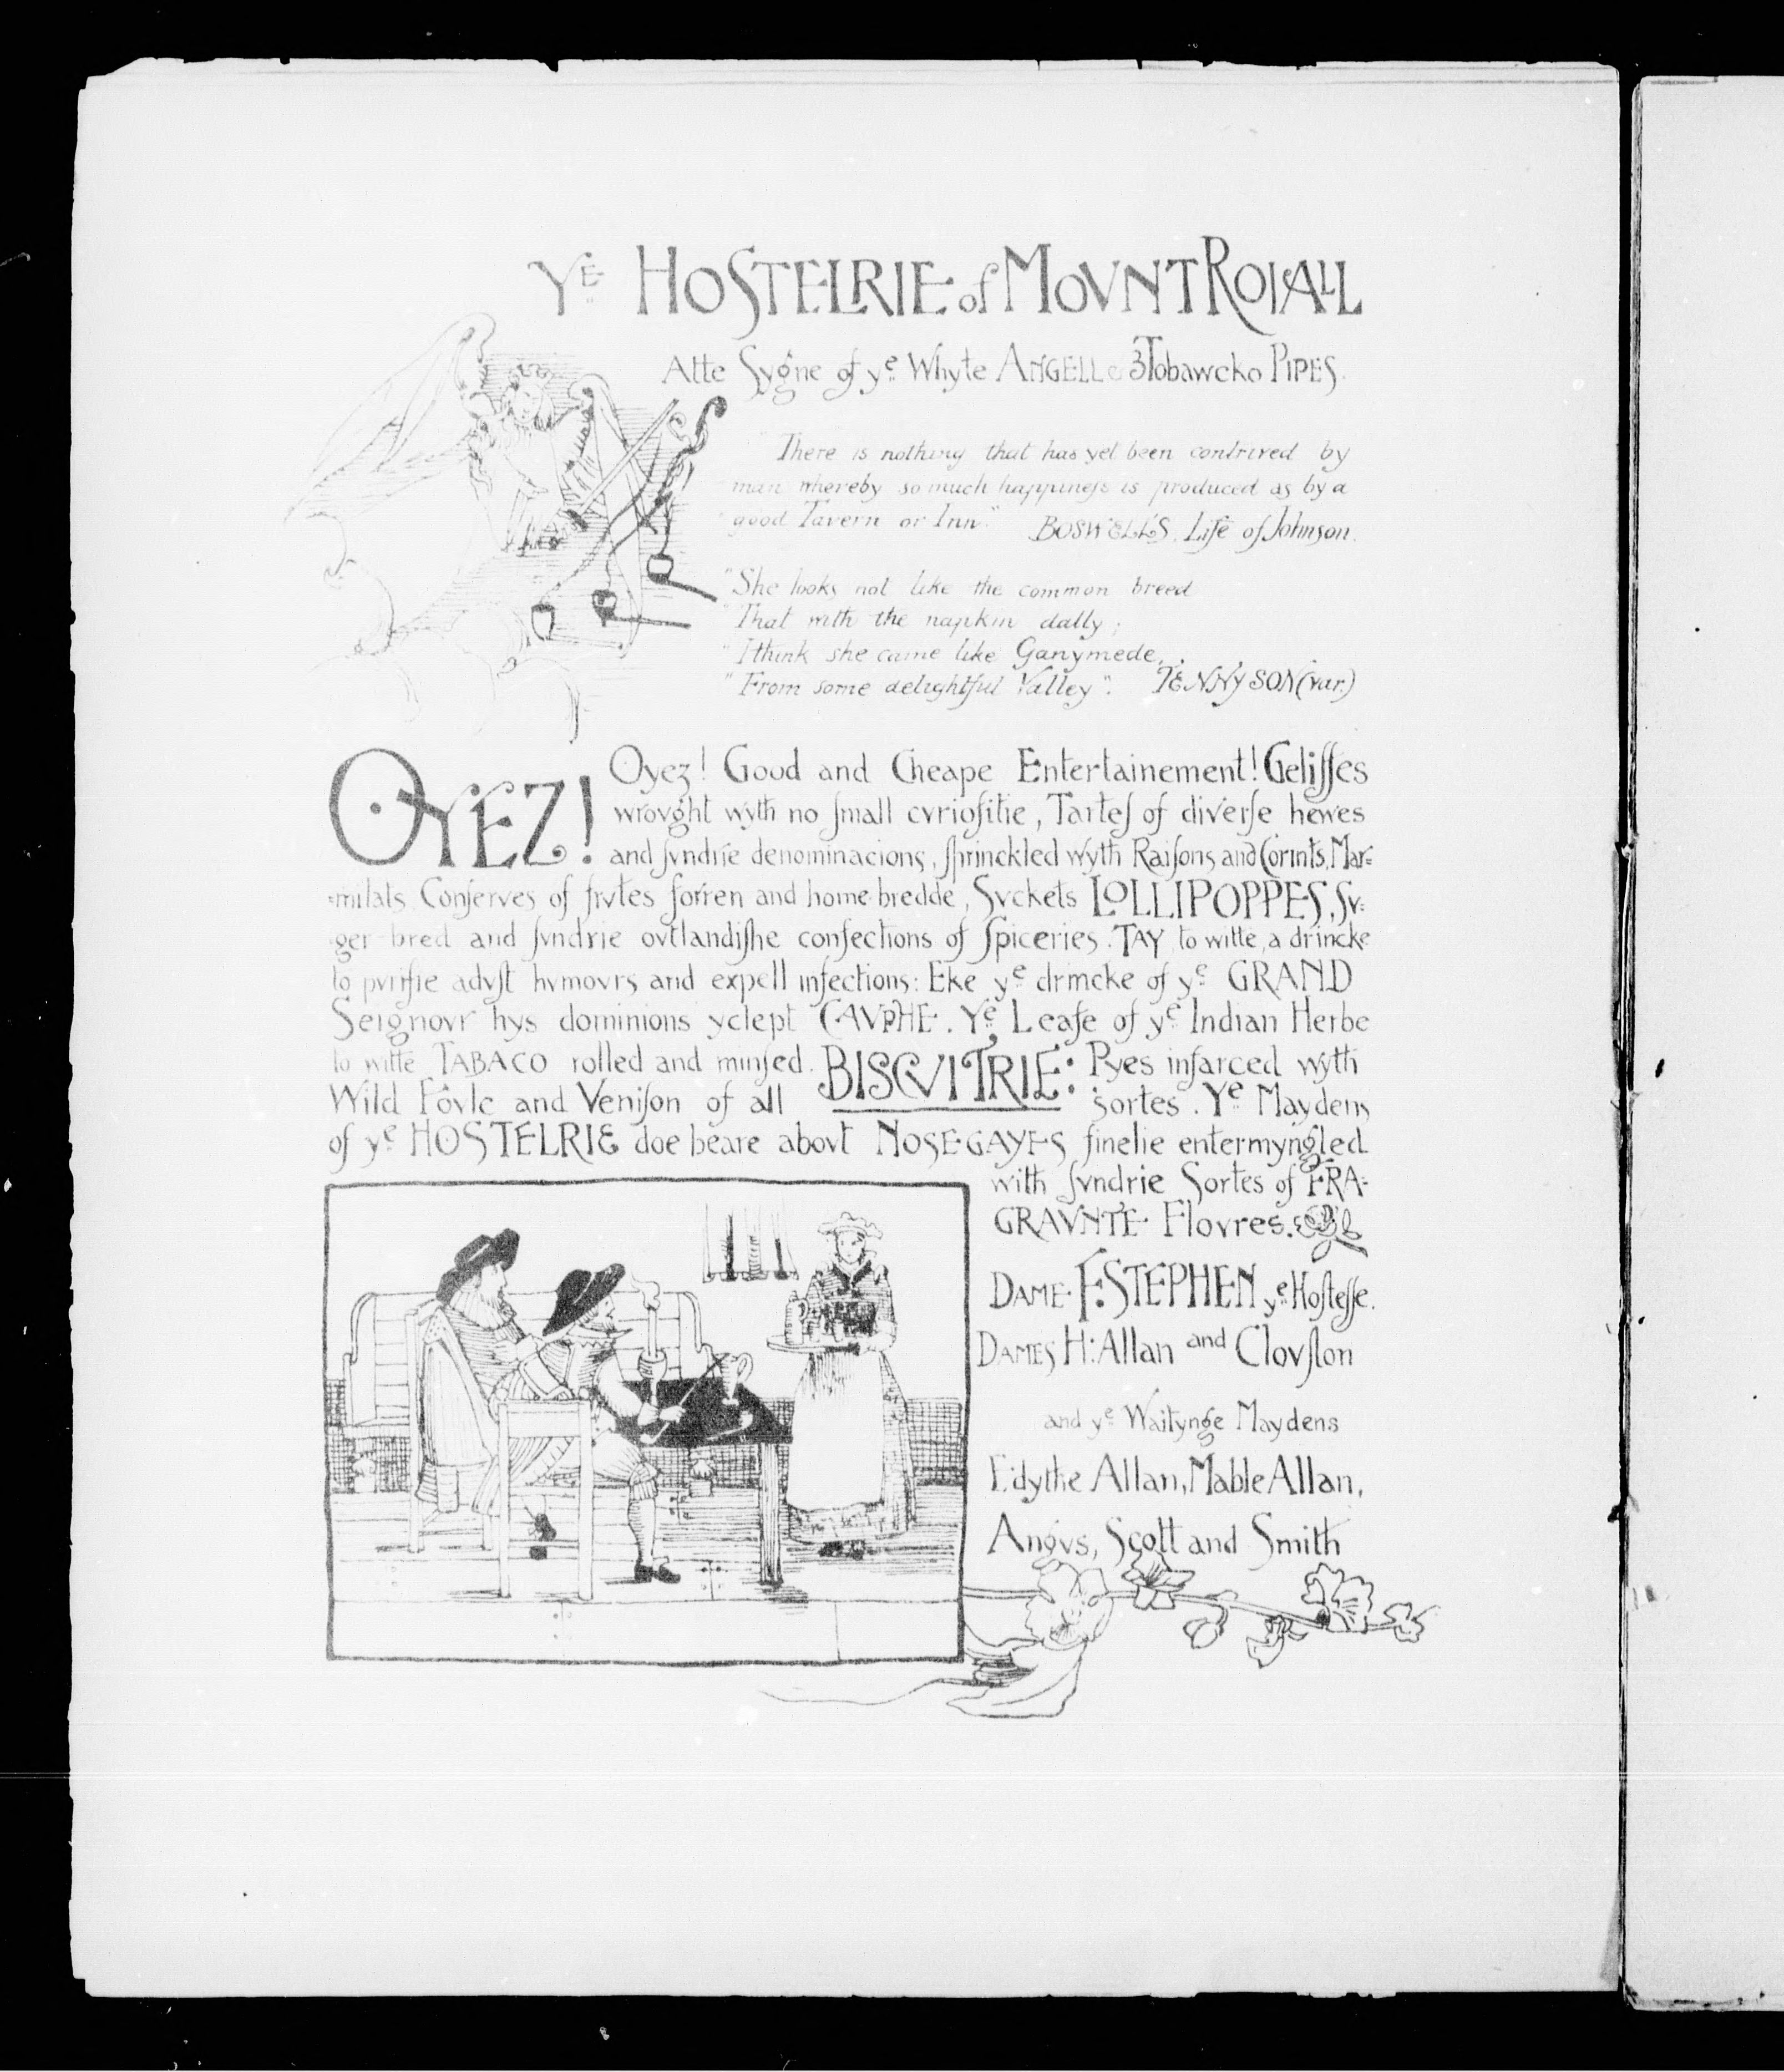 Ye HOSTELRIE of MOVNT ROIALL
Atte Sygne of ye Whyte ANGELL & 3 Tobawcko PIPES.
"There is nothing that has yet been contrived by
man whereby so much happineſs is produced as by a
good Tavern or Inn." BOSWELL'S Life of Johnson.
"She looks not like the common breed
"That with the napkin dally;
"I think she came like Ganymede,
"From some delightful Valley". TENNYSON (var.)
OYEZ! Oyez! Good and Cheape Entertainement! Geliſſes
wrovght wyth no ſmall cvrioſitie, Tarteſ of diverſe hewes
and ſvndrie denominacions, ſprinckled wyth Raiſons and Corints, Mar=
=milats, Conſerves of frvtes forren and home-bredde, Svckets LOLLIPOPPES, Sv=
=ger-bred and ſvndrie ovtlandiſhe confections of Spiceries. TAY to witte, a drincke
to pvrifie advſt hvmovrs and expell infections: Eke ye drincke of ye GRAND
Seignovr hys dominions yclept CAVPHE. Ye Leafe of ye Indian Herbe
to witte TABACO rolled and minſed. BISCVITRIE: Pyes infarced wyth
Wild Fovle and Veniſon of all sortes. Ye Maydens
of ye HOSTELRIE doe beare abovt NOSEGAYES finelie entermyngled
with ſvndrie Sortes of FRA=
GRAVNTE Flovres.
DAME F. STEPHEN ye Hoſteſſe.
DAMES H: Allan and Clovſton
and ye Waitynge Maydens
Edythe Allan, Mable Allan,
Angvs, Scott and Smith